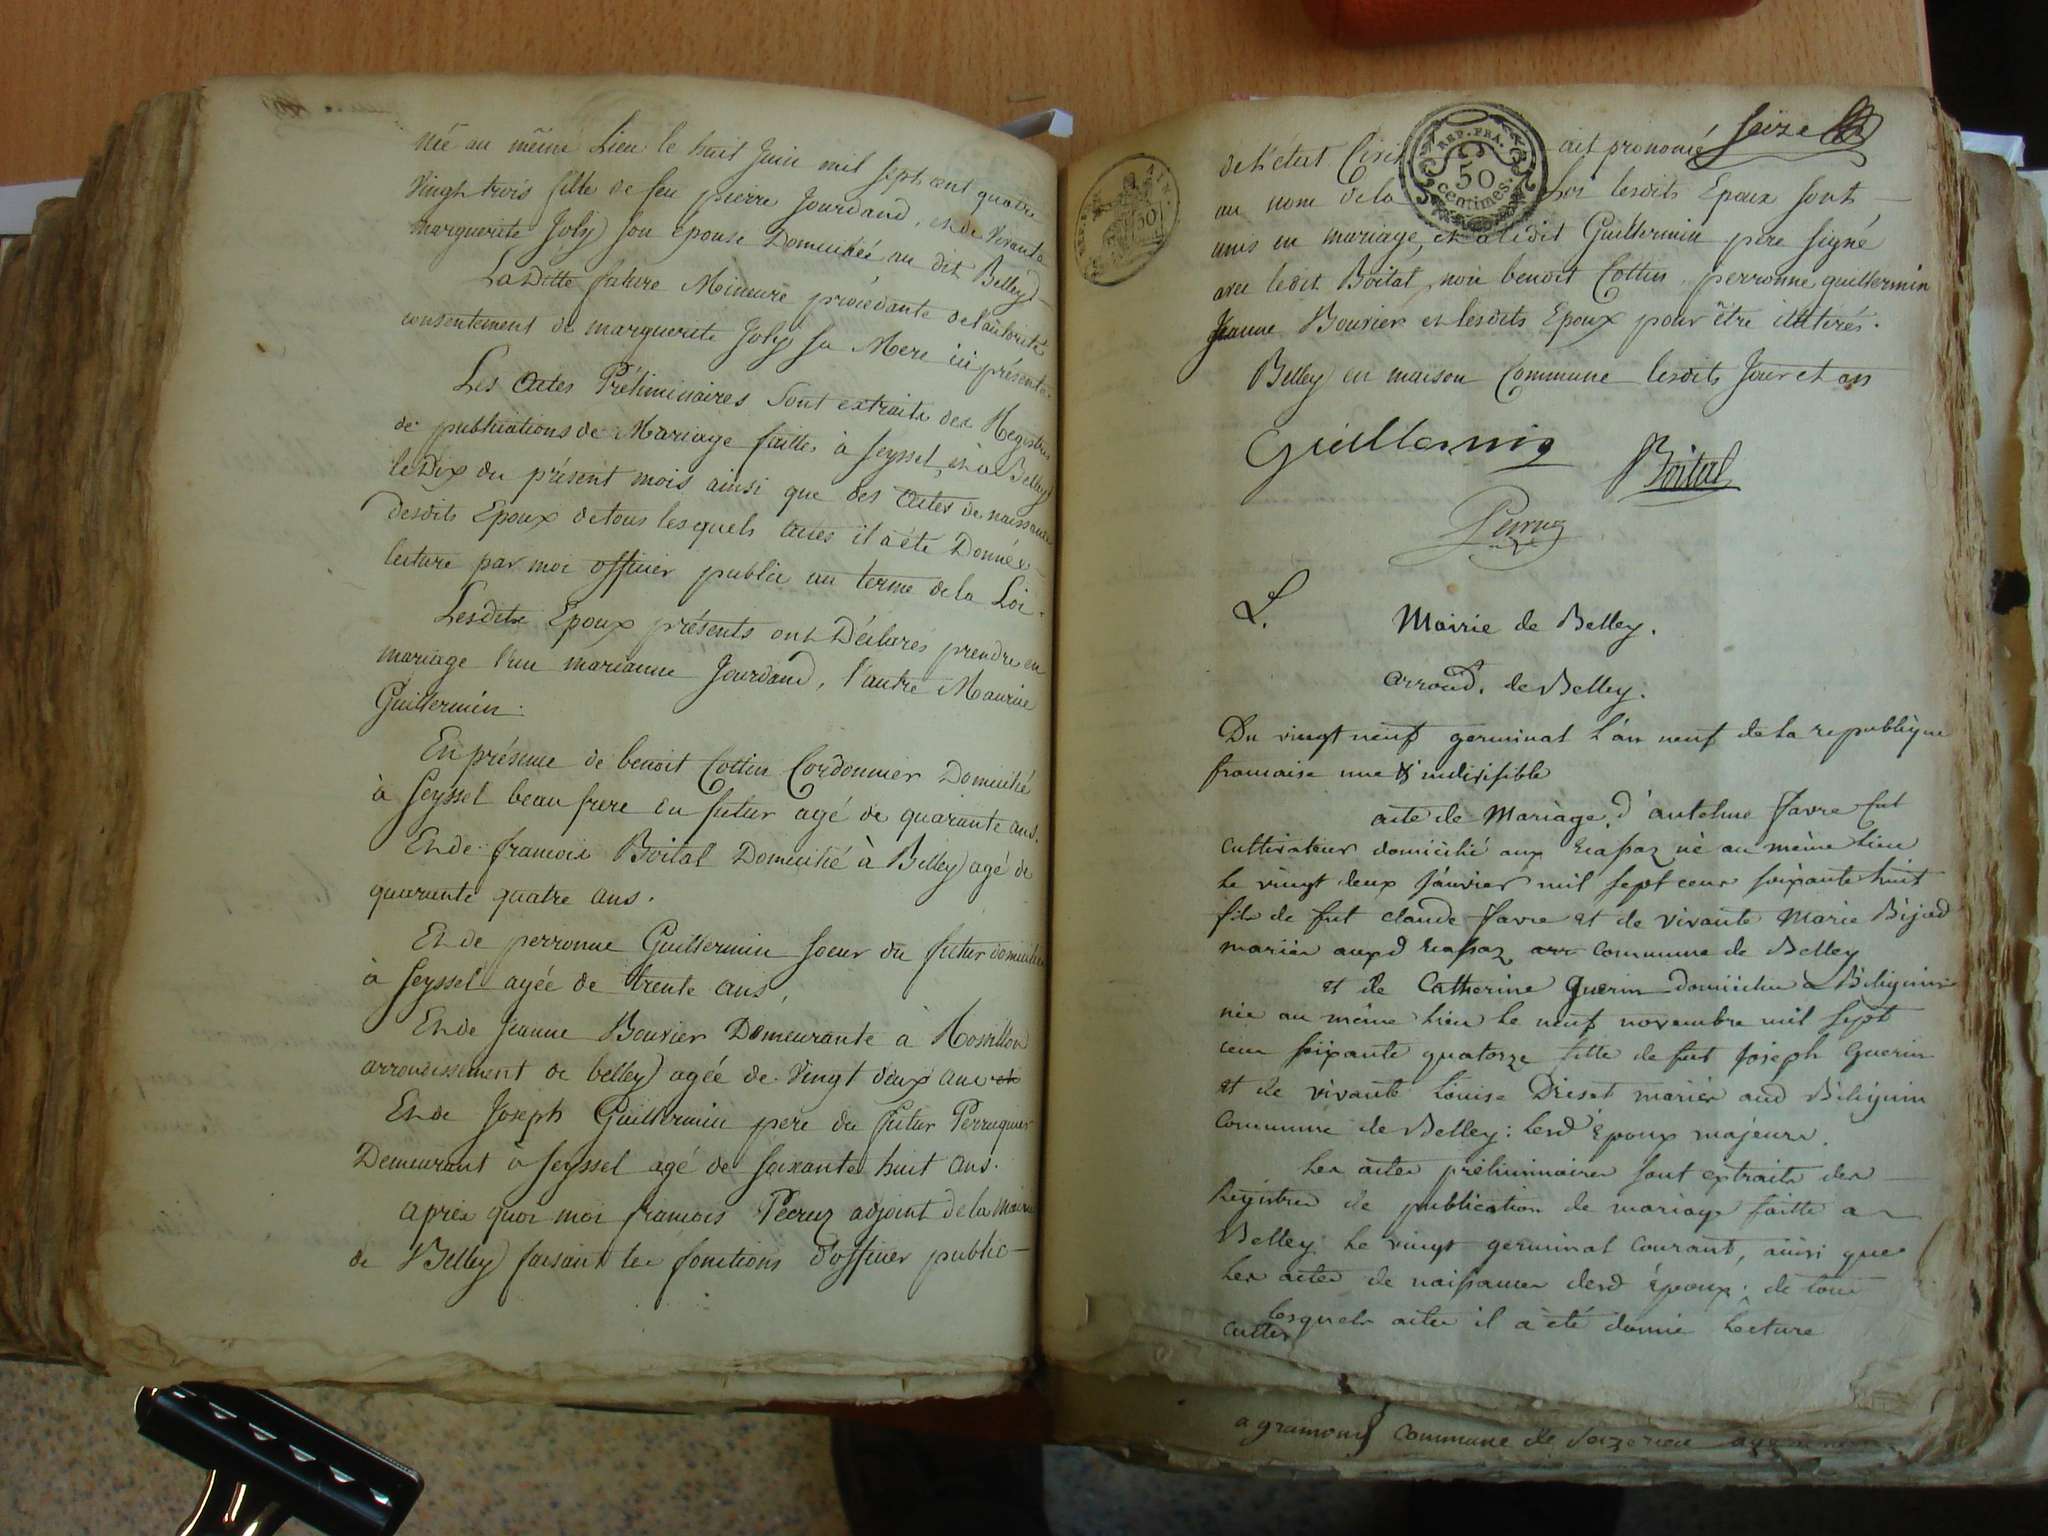 née au même Lieu le huit Juin mil sept cent quatre
Vingt trois fille de feu pierre Jourdand, et de Vivante
marguerite Joly son épouse Domiciliée au dit Belley
La Ditte future Mineure procédante de l'autorité
consentement de marguerite Joly sa Mere ici présente
Les Actes Préliminaires Sont extraits des Registres
de publications de Mariage faittes à Seyssel, et à Belley
le Dix du présent mois ainsi que des Actes de naissance
desdits Epoux de tous lesquels actes il à été Donnée
lecture par moi officier public au terme de la Loi.
Lesdits Epoux présents ont Déclarés prendre en
mariage l'un marianne Jourdand, l'autre Maurice
Guillermin.
En présence de benoit Cottin Cordonnier Domicilié
à Seyssel beau frere du futur agé de quarante ans.
Et de francois Boital Domicilié à Belley agé de
quarante quatre ans.
Et de perronne Guillermin soeur du futur domiciliée
à Seyssel agée de trente ans,
Et de Jeanne Bouvier Demeurante à
arrondissement de belley agée de Vingt deux ans et
Et de Joseph Guillermin pere du futur Perruquier
Demeurant à Seyssel agé de soixante huit ans.
après quoi moi francois Perruz adjoint de la Mairie
de Belley faisant les fonctions d'officier public
Seize
de l'état Civil ait prononcé
REP. FRA.
50
centimes.
au nom de la Loi lesdits Epoux sont
unis en mariage, et a ledit Guillermin pere signé
avec ledit Boital, non benoit Cottin, perronne guillermin
Jeanne Bouvier et lesdits Epoux pour être illitérés.
Belley en maison Commune lesdits Jour et an
Guillermin
Boital
Perruz
Mairie de Belley.
arrond. de Belley.
Du vingt neuf germinal l'an neuf de la republique
francaise une & indivisible
acte de Mariage d'antelme favre fut
cultivateur domicilié aux né au même lieu
le vingt deux Janvier mil sept cent soixante huit
fils de fut claude favre et de vivante Marie
mariés commune de Belley
et de Catherine Guerin domiciliée a
née au même lieu le neuf novembre mil sept
cent soixante quatorze fille de fut Joseph Guerin
et de vivante Louise mariés aud
Commune de Belley: lesd Epoux majeurs.
Les actes préliminaires sont extraits des
Registres de publication de mariage faitte a
Belley le vingt germinal courant, ainsi que
les actes de naissances desd Epoux; de tous
lesquels actes il à été donné Lecture
commune de